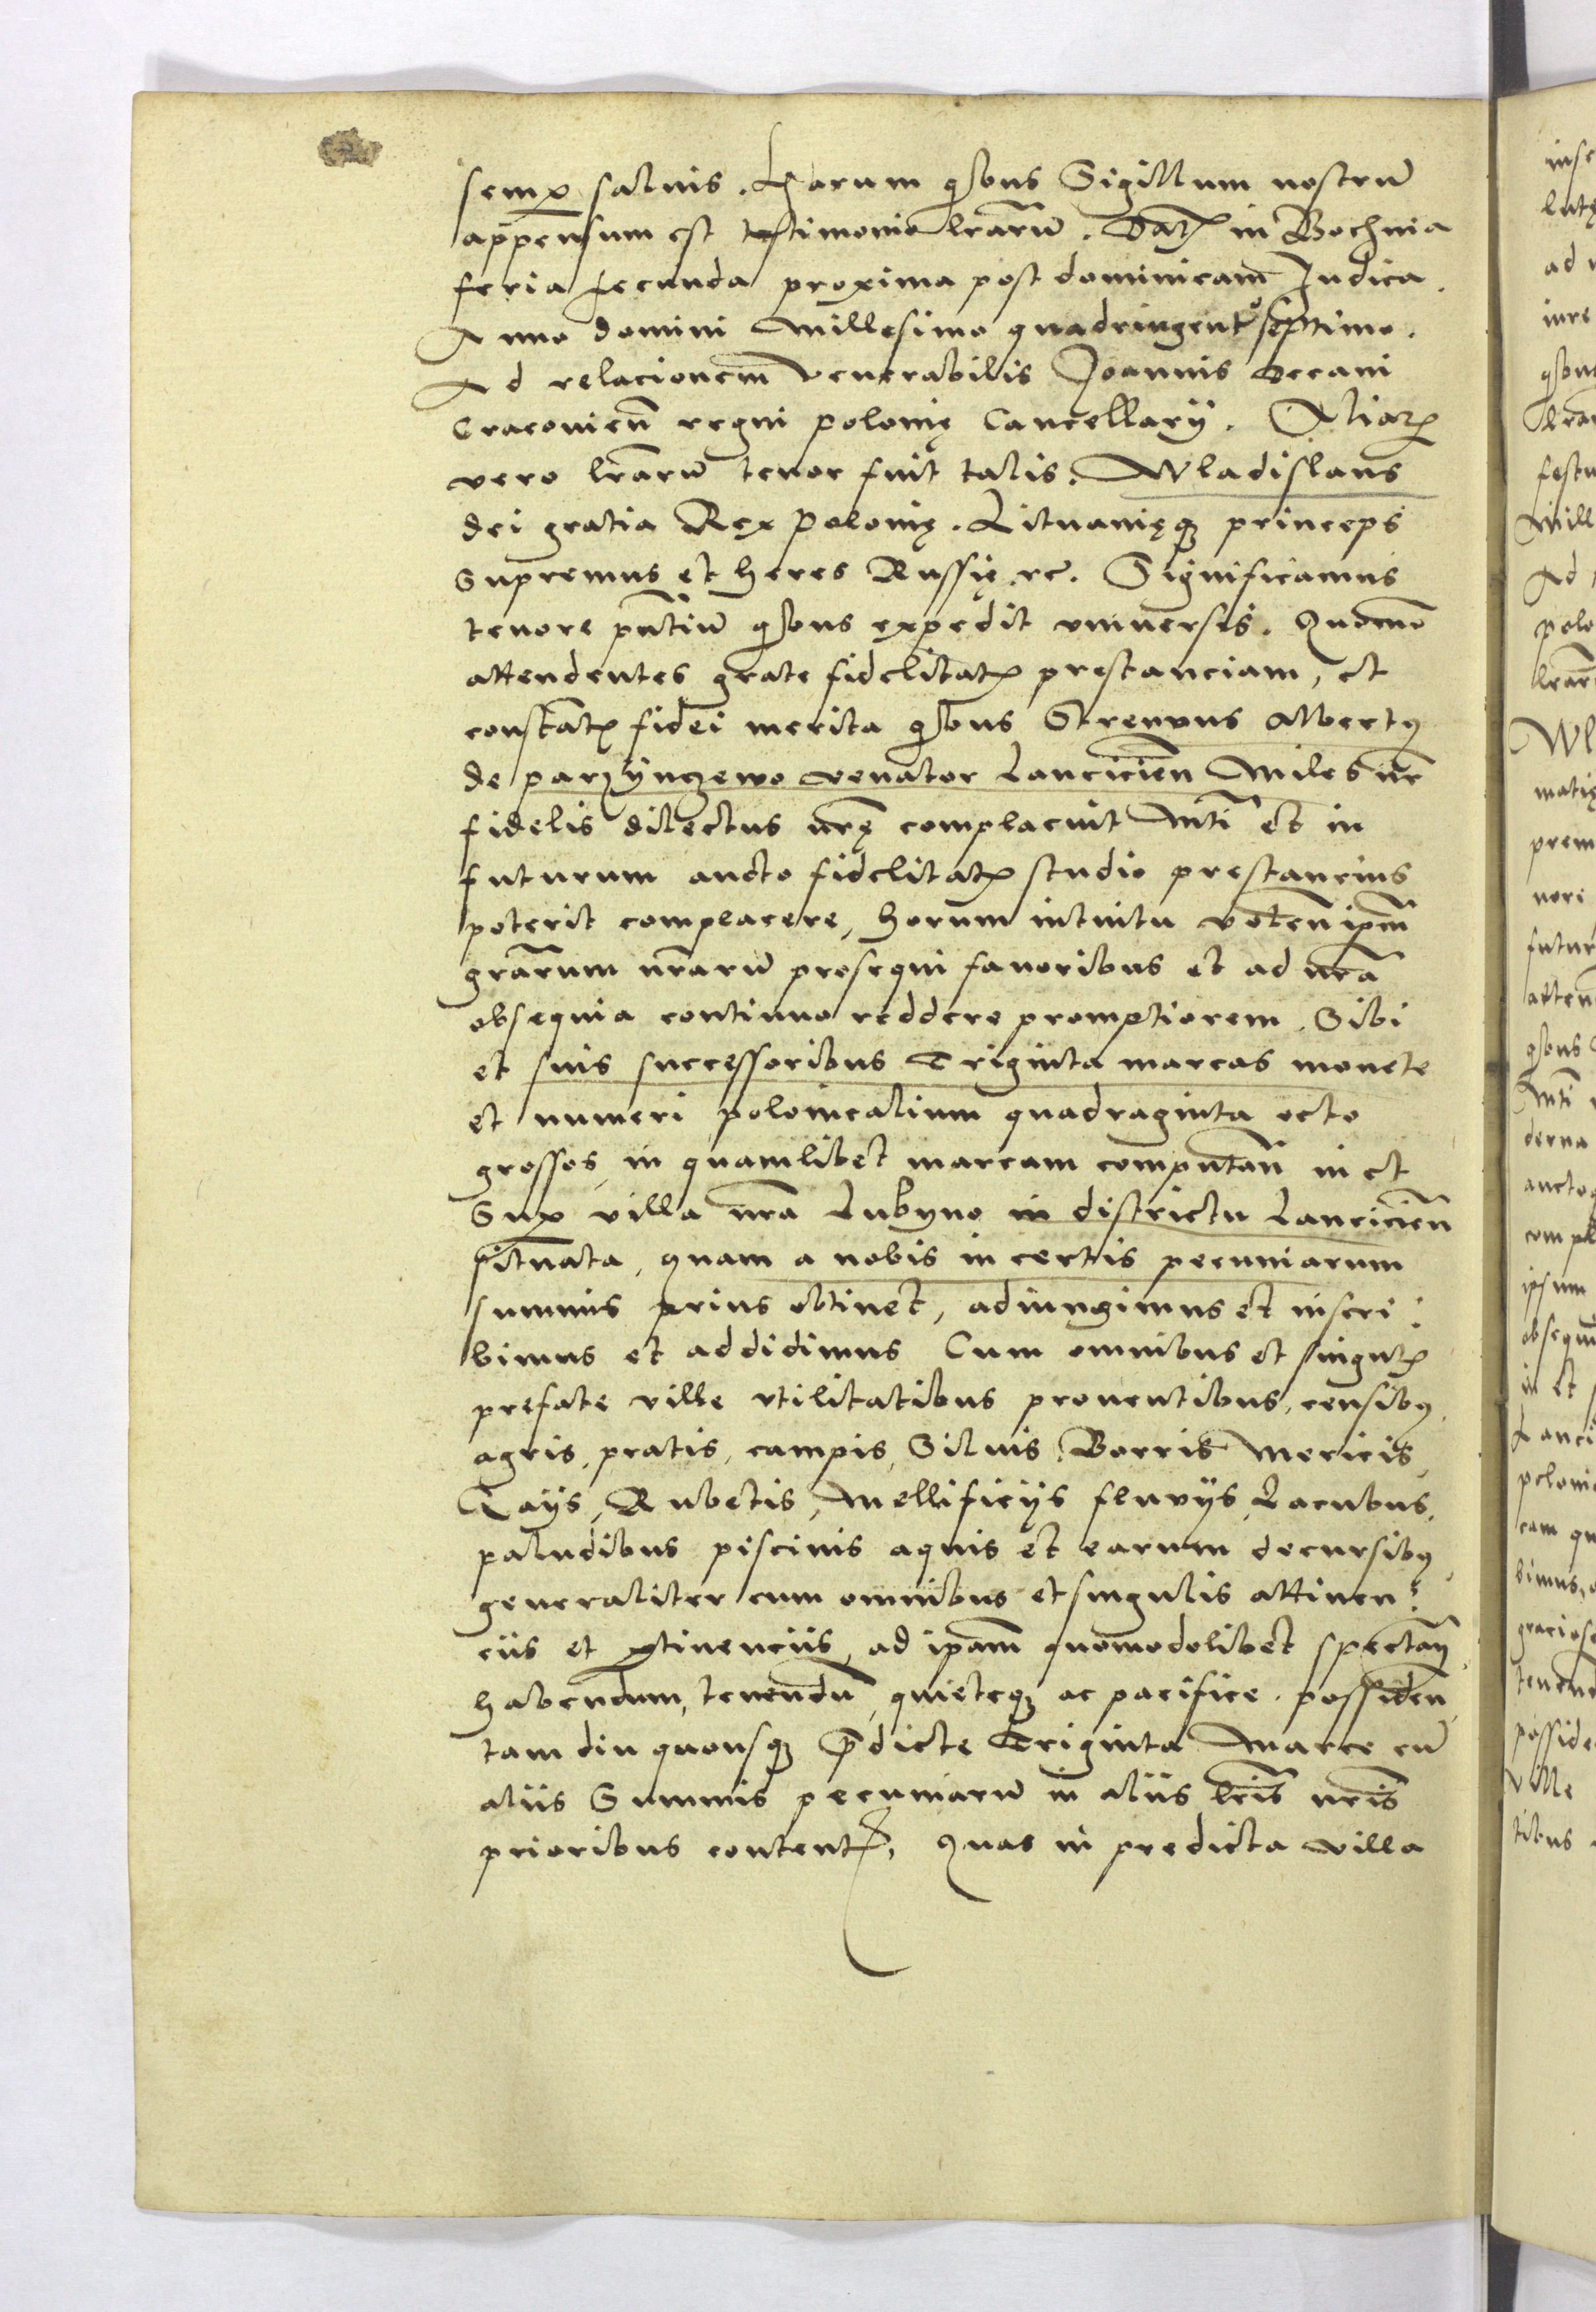 semp salvis. Harum qibus Sigillum nostrū
appensum est testimonio lrarū. Datȝ in Bochnia
feria secunda proxima post dominicam Judica.
Anno domini Millesimo quadringentº septimo.
Ad relacionem venerabilis Joannis decani
Cracovieñ regni polonię Cancellarÿ. Aliarȝ
vero lrarū tenor fuit talis. Wladislaus
dei gratia Rex Polonię. Lituanięqȝ princeps
Supremus et heres Russię rc. Significamus
tenore pñtiū qibus expedit vniversis. Quomo
attendentes grate fidelitatȝ prestanciam, et
constatȝ fidei merita qibus Strenuus Albertꝰ
de parzÿnczewo venator Lancicieñ Miles nr
fidelis dilectus nrę complacuit Mti et in
futurum aucto fidelitatȝ studio prestancius
poterit complacere, horum intuitu voleñ ipm
grarum nrarū prosequi favoribus et ad nra
obsequia continuo reddere promptiorem. Sibi
et suis successoribus Triginta marcas monete
et numeri polonicalium quadraginta octo
grossos, in quamlibet marcam computañ in et
Sup villa nra Lubyno in districtu Lancicieñ
situata, quam a nobis in certis pecuniarum
summis prius obtinet, adiungimus et inscri:
bimus et addidimus Cum omnibus et singulȝ
prefate ville vtilitatibus proventibus, censibꝰ,
agris, pratis, campis, Silvis, Borris Mericis,
Gaÿs, Rubetis, Mellificÿs fluvÿs, Lacubus,
paludibus piscinis aquis et earum decursibꝰ,
generaliter cum omnibus et singulis attinen:
ciis et ptinenciis, ad ipam quomodolibet spectañ,
habendum, tenendū, quieteqȝ ac pacifice. possideñ,
tam diu quousqȝ pdicte Triginta Marce cū
aliis Summis pecuniarū in aliis lris nris
prioribus contentȝ, Quas in predicta villa